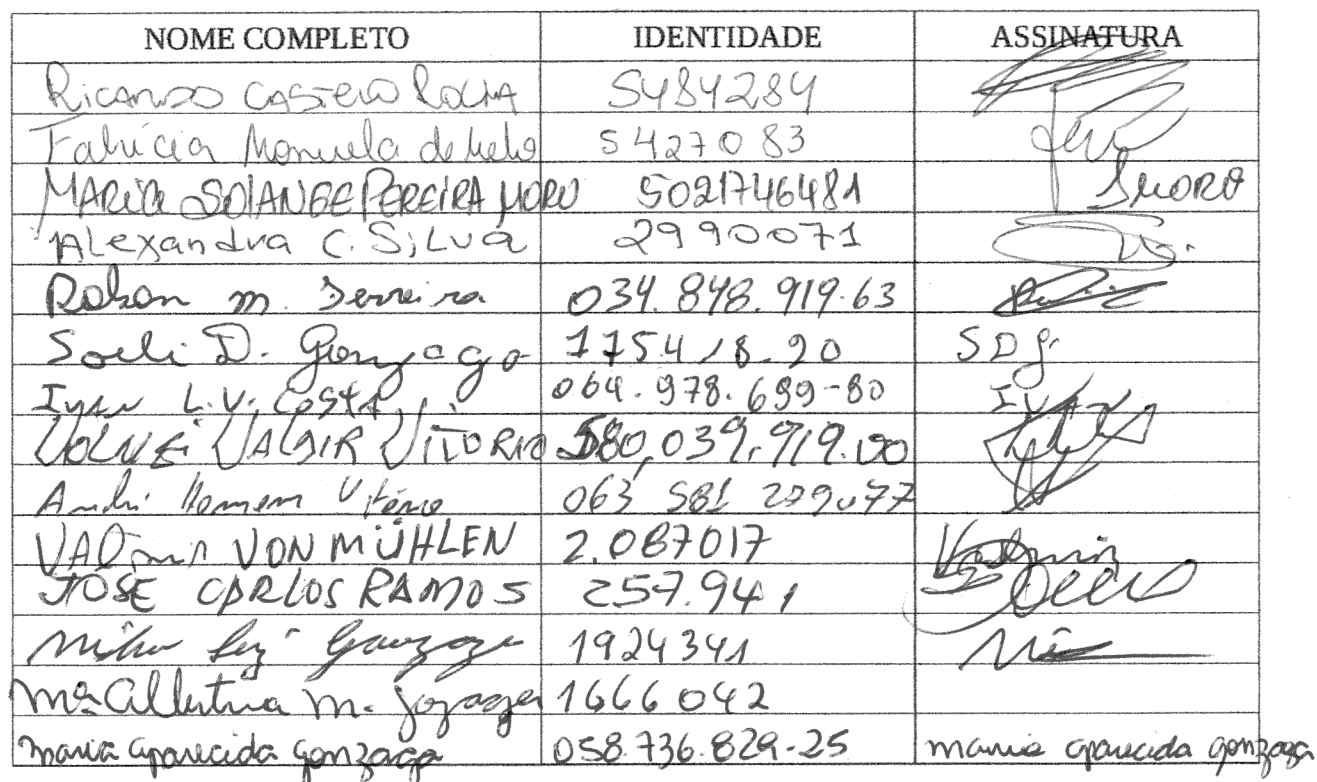 NOME COMPLETO IDENTIDADE ASSINATURA
Ricardo Castelo Rocha 5484284
Fabrícia Manuela de Melo 5427083
MARIA SOLANGE PEREIRA MORO 5021746481 SMORO
Alexandra C. Silva 2990071
Robson m. Ferreira 034.848.919.63
Soeli D. Gonzaga 1754 8.20 SDG.
Ivan L.V. Costa 064.978.699-80
VOLNEI VALDIR VITORIO 580,039.919.00
André Homem Vitório 063 581 229.77
VALDmir VON MÜHLEN 2.087017 Valdmir
JOSE CARLOS RAMOS 257.941
Gonzaga 1924341
Mª Albertina M. Gozaga 1666042
maria aparecida gonzaga 058.736.829-25 maria aparecida gonzaga